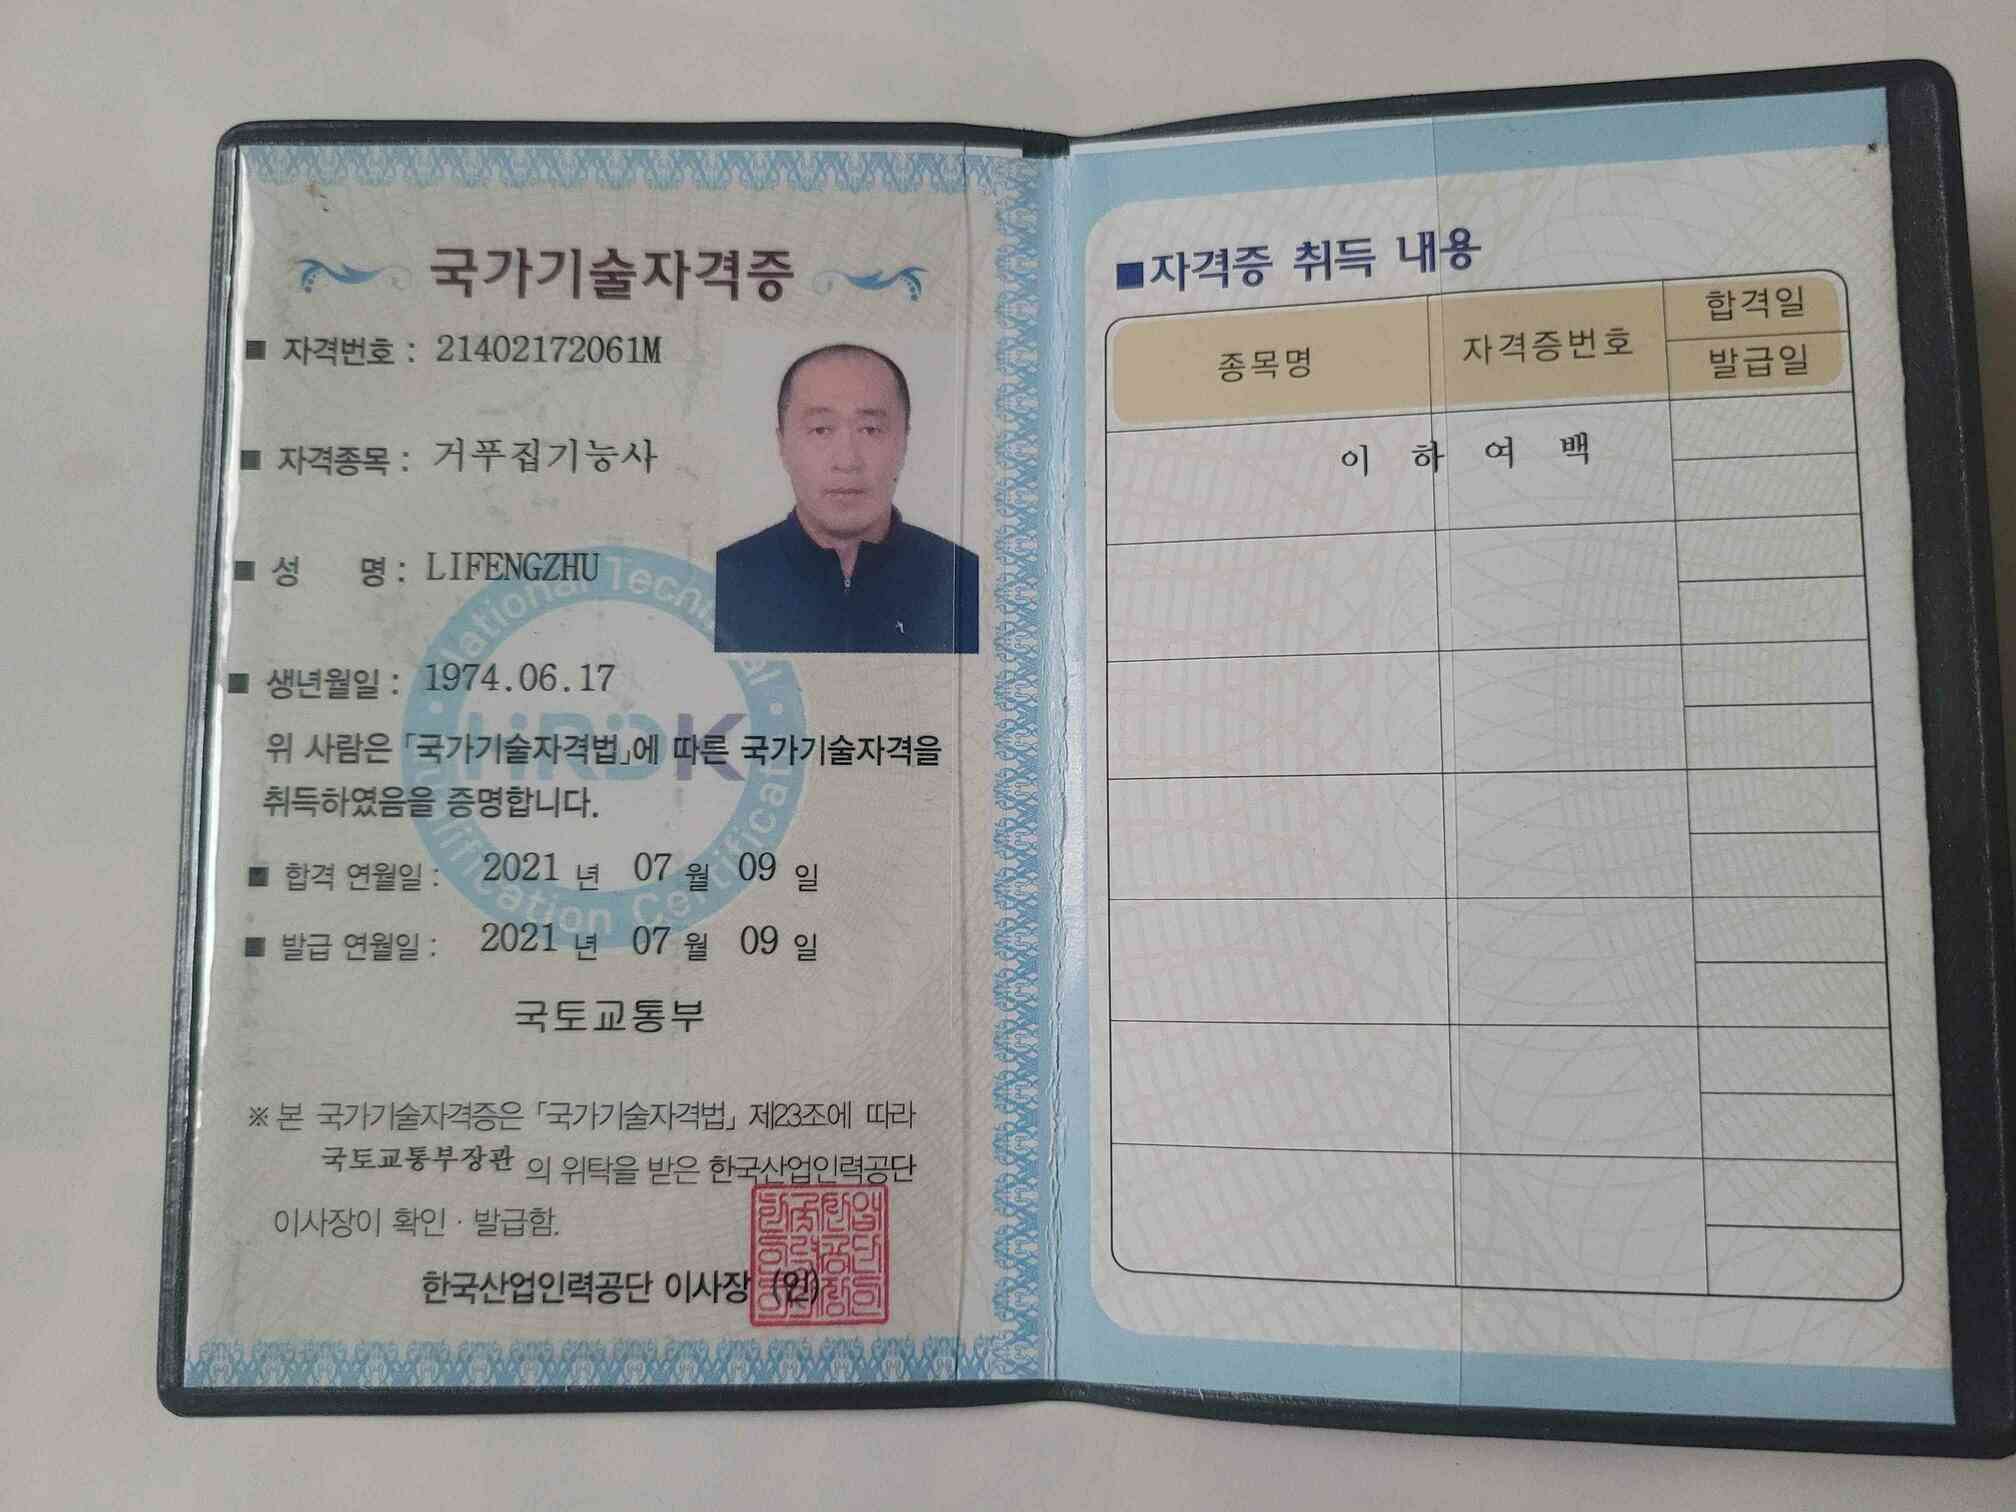 국가기술자격증
■ 자격번호 : 21402172061M
■ 자격종목 : 거푸집기능사
■ 성 명 : LIFENGZHU
■ 생년월일 : 1974.06.17
위 사람은 「국가기술자격법」에 따른 국가기술자격을
취득하였음을 증명합니다.
■ 합격 연월일 : 2021 년 07 월 09 일
■ 발급 연월일 : 2021 년 07 월 09 일
국토교통부
※ 본 국가기술자격증은 「국가기술자격법」 제23조에 따라
국토교통부장관 의 위탁을 받은 한국산업인력공단
이사장이 확인 · 발급함.
한국산업인력공단 이사장 (인)
HRDK
■자격증 취득 내용
종목명 자격증번호 합격일
발급일
이 하 여 백